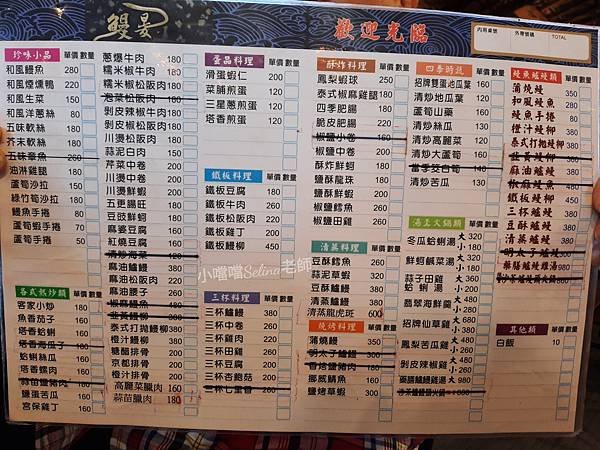 鰻晏
歡迎光臨
內用桌號
外帶號碼
TOTAL
珍味小品 單價 數量
和風鰻魚 280
和風煙燻鴨 220
和風生菜 150
和風洋蔥絲 80
五味軟絲 180
芥末軟絲 180
五味章魚 260
油淋雞腿 180
蘆筍沙拉 150
綠竹筍沙拉 180
鰻魚手捲 80
蘆筍蝦手捲 70
蘆筍手捲 50
各式熱炒類 單價 數量
客家小炒 180
魚香茄子 160
塔香蛤蜊 160
塔香海瓜子
蛤蜊絲瓜 160
塔香螺肉 160
蒜苗鹽豬肉
鹽蛋苦瓜 160
宮保雞丁 160
蔥爆牛肉 180
糯米椒牛肉 180
糯米椒松阪肉 180
泡菜松阪肉 180
剝皮辣椒牛肉 180
剝皮辣椒松阪肉 180
川燙松阪肉 180
蒜泥白肉 150
芹菜中卷 200
川燙鮮蝦 200
五更腸旺 180
豆豉鮮蚵 180
麻婆豆腐 150
紅燒豆腐 150
清炒海菜
麻油鱸鰻 380
麻油松阪肉 220
麻油腰子 260
椒麻鱷魚 180
韭黃鱔糊 380
泰式打拋鰻柳 380
橙汁鰻柳 380
糖醋排骨 200
京都排骨 200
橙汁排骨 200
高麗菜臘肉 160
蒜苗臘肉 180
蛋品料理 單價 數量
滑蛋蝦仁 200
菜脯煎蛋 120
三星蔥煎蛋 120
塔香煎蛋 120
鐵板料理 單價 數量
鐵板豆腐 180
鐵板牛肉 260
鐵板松阪肉 220
鐵板雞丁 220
鐵板鰻柳 450
小噹噹Selina老師
三杯料理 單價 數量
三杯鱸鰻 380
三杯中卷 260
三杯雞肉 220
三杯田雞 260
三杯杏鮑菇 200
三杯七里香
酥炸料理 單價 數量
鳳梨蝦球 180
泰式椒麻雞腿 180
四季肥腸 180
脆皮肥腸 180
椒鹽小卷 160
椒鹽中卷 200
酥炸鮮蚵 180
鹽酥龍珠 180
鹽酥鮮蝦 180
椒鹽鱷魚 280
椒鹽田雞 260
清蒸料理 單價 數量
豆酥鱈魚 280
蒜泥草蝦 320
豆酥鱸鰻 380
清蒸鱸鰻 380
清蒸龍虎斑 600
燒烤料理 單價 數量
蒲燒鰻 350
明太子鱸鰻
香烤鹽豬肉
挪威鯖魚 160
鹽烤草蝦 300
四季時蔬 單價 數量
招牌雙蛋地瓜葉 160
清炒地瓜葉 100
蘆筍山藥 180
清炒絲瓜 130
清炒高麗菜 120
清炒大蘆筍 180
當季茭白筍
清炒苦瓜 130
湯＆火鍋類 單價 數量
冬瓜蛤蜊湯 大 320 小 180
鮮蝦鹹菜湯 大 320 小 180
蒜子田雞蛤蜊湯 大 360 小 240
翡翠海鮮羹 大 280 小 180
招牌仙草雞 大 680 小 360
鳳梨苦瓜雞 大 460 小 260
剝皮辣椒雞 大 460 小 260
藥膳鱸鰻雞湯 大 980
沙茶鱸鰻頭火鍋
鰻魚鱸鰻類 單價 數量
蒲燒鰻 350
和風鰻魚 280
鰻魚手捲 80
橙汁鰻柳 380
泰式打拋鰻柳 380
韭黃鱔糊 380
麻油鱸鰻 380
椒麻鰻魚
鐵板鰻柳 450
三杯鱸鰻 380
豆酥鱸鰻 380
清蒸鱸鰻 380
明太子鱸鰻
藥膳鱸鰻雞湯 980
沙茶鱸鰻頭火鍋
其他類 單價 數量
白飯 10